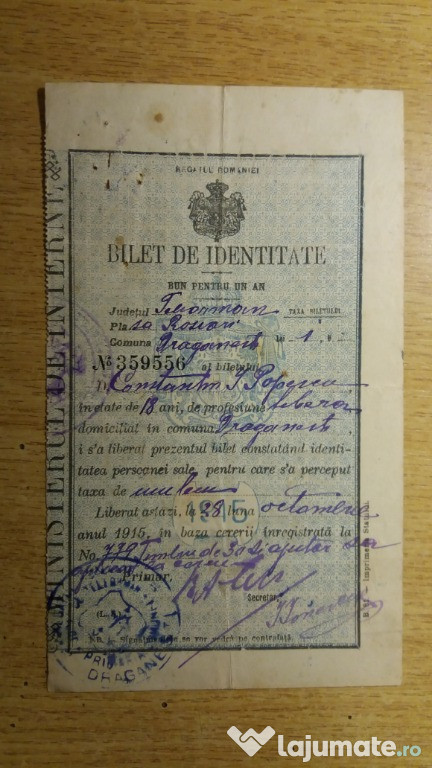 REGATUL ROMANIEI
BILET DE IDENTITATE
BUN PENTRU UN AN
Județul Teleorman TAXA BILETULUI
Plasa Roșiori
Comuna Draganesti Lei 1
№ 359556 al biletului
D. Constantin I Popescu
in etate de 18 ani, de profesiune
domiciliat in comuna Draganesti
i s'a liberat prezentul bilet constatând identi-
tatea persoanei sale, pentru care s'a perceput
taxa de un leu
Liberat astăzi, la 28 luna octombrie
anul 1915, in baza cererii inregistrată la
No. Timbru de 30 și ajutor s'a
Primar,
Secretar
(L. S.)
MINISTERUL DE INTERNE
1915
DRAGANE
Imprimeria Statului
lajumate.ro